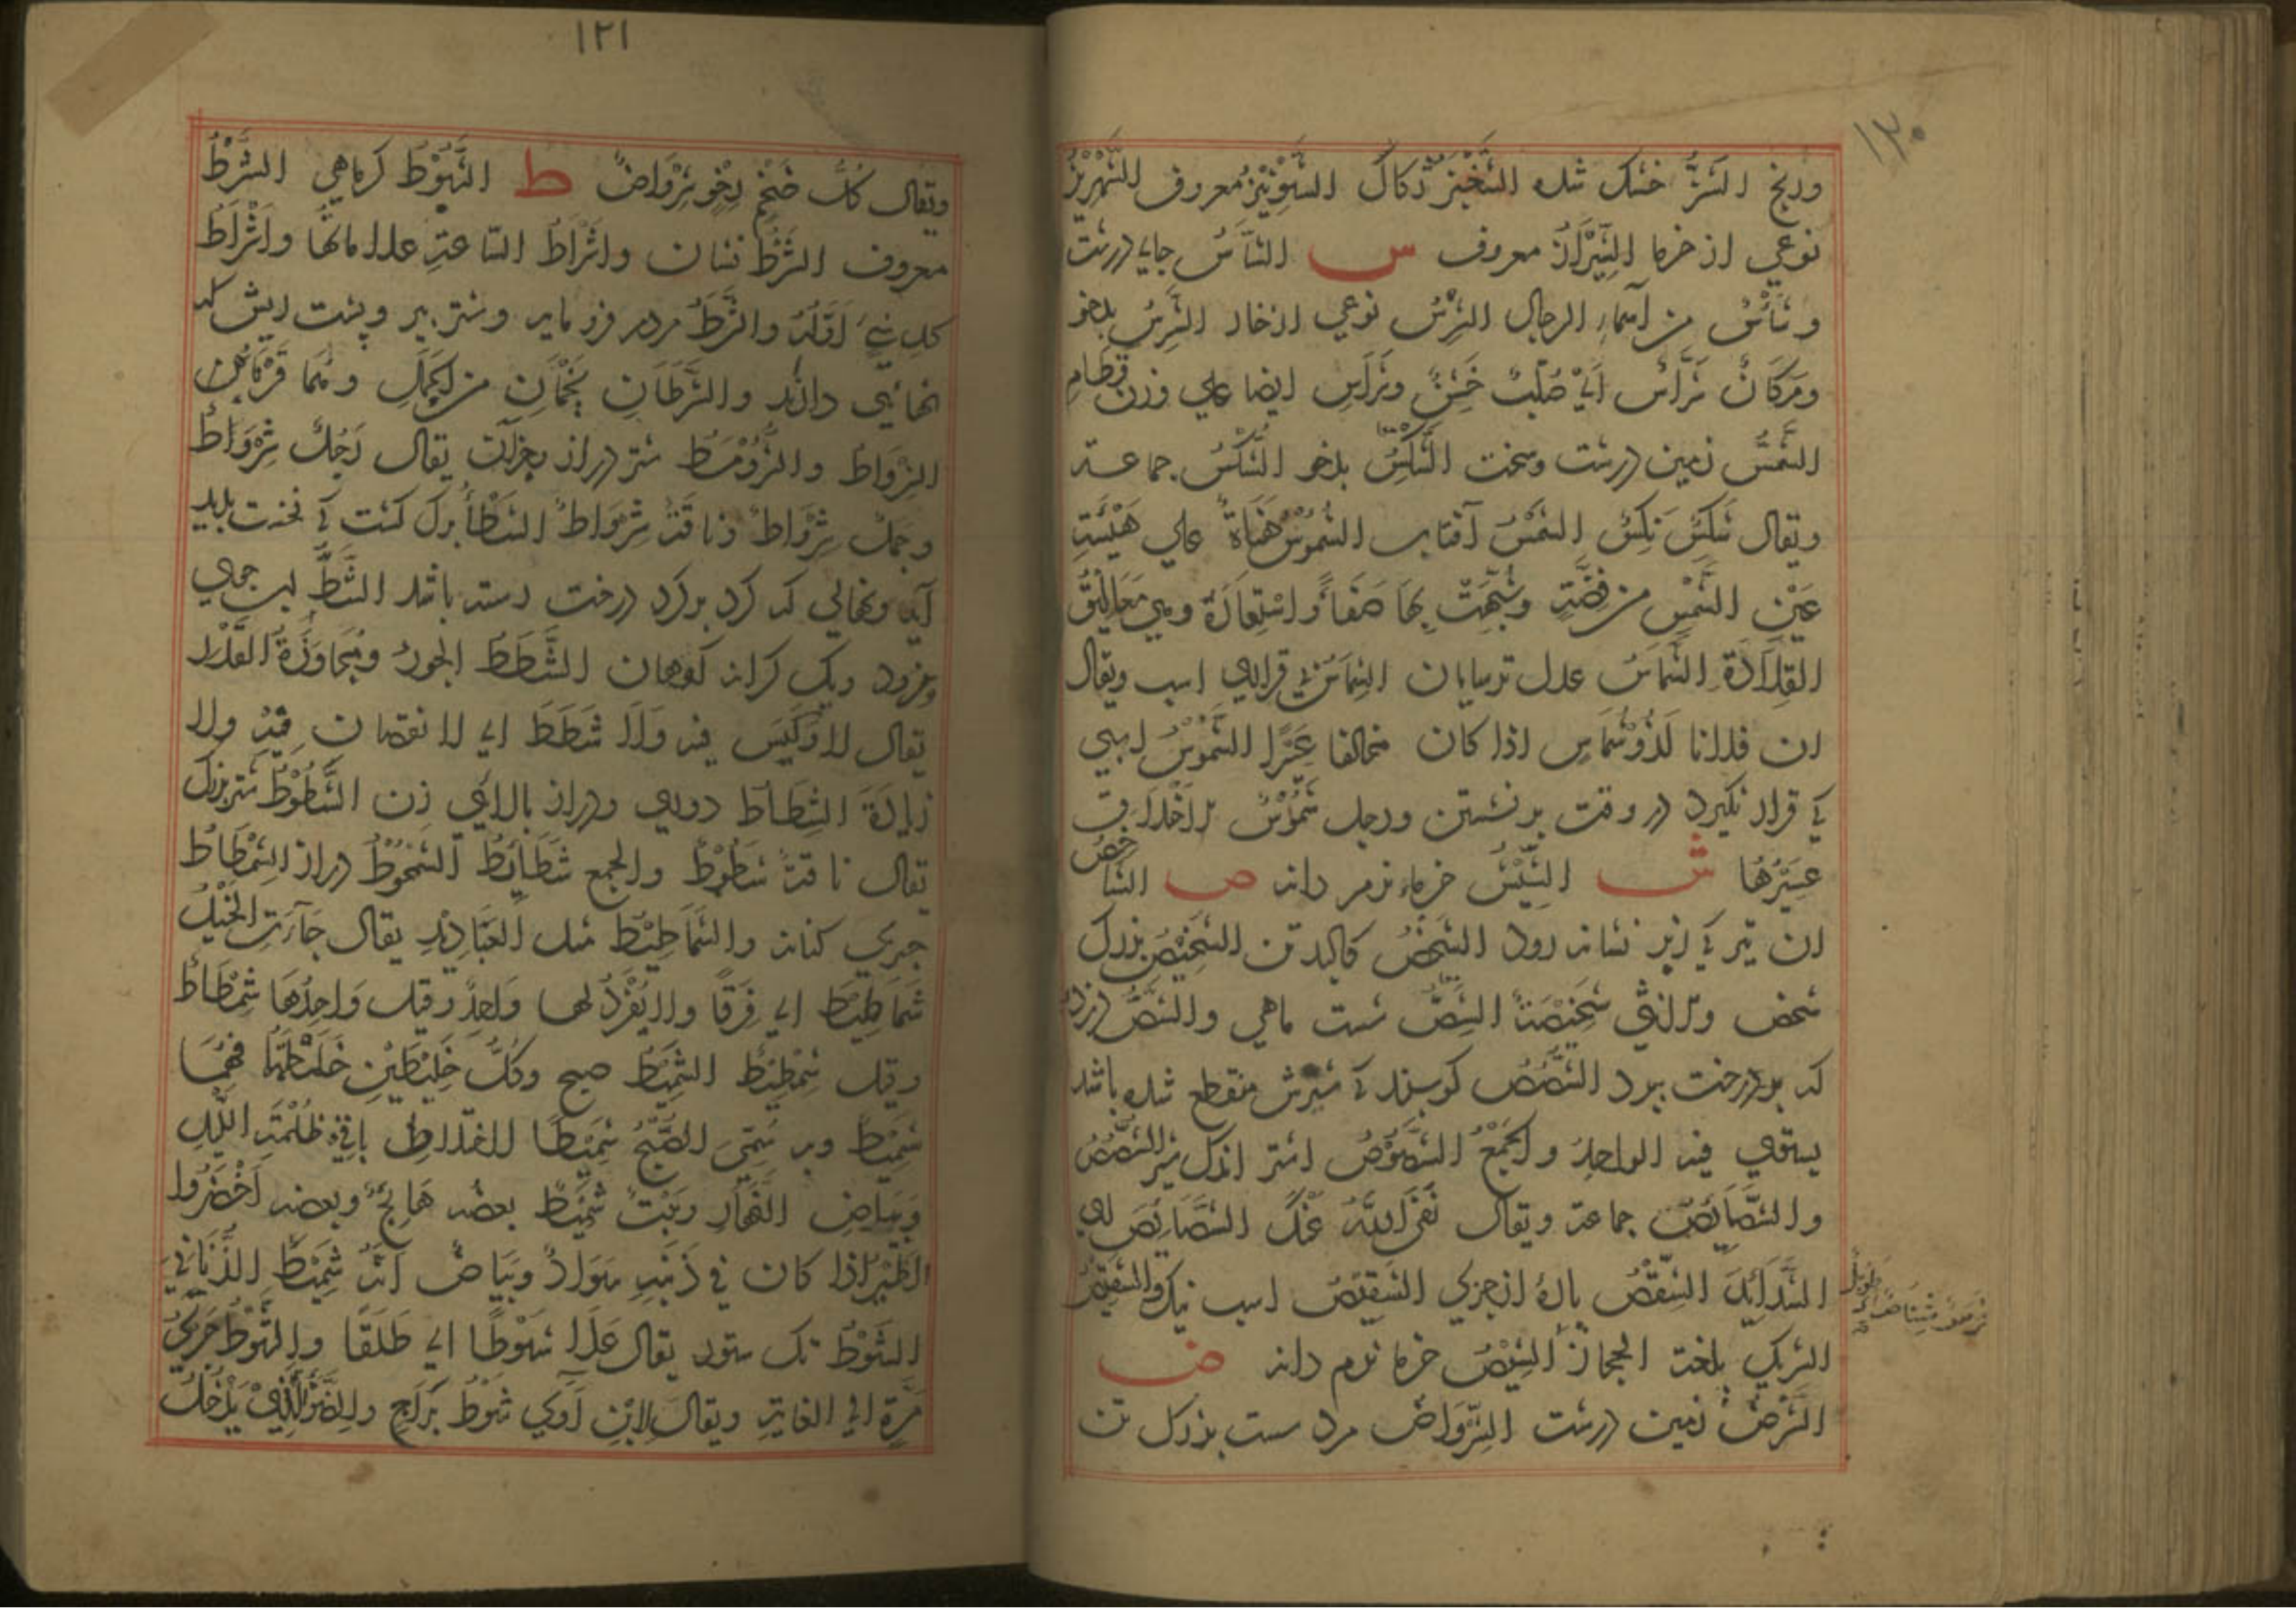 ١٣٠
ورنج الشَزُّ خشك شده الشَّخْيز ژكاك الشَّوِنِيْز معروف الشهْرِيْزُ
نوعي از خرما الشِّيْرَازُ معروف س الشَأسُ جاي درشت
و شَأسُ من اَسماء الرجال الشِّرْسُ نوعي از خار الشَّرِسُ بدخو
ومَكَانٌ شَرَأسٌ اَيْ صُلْبٌ خَشِنٌ وشَرَاسِ ايضا علي وزن قطام
الشَّسُّ زمين درشت وسخت الشَّكِسُ بدخو الشُّكْسُ جماعة
ويقال شَكِسٌ نَكِسٌ الشَّمْسُ آفتاب الشُّمُوْسُ هَنَاةٌ علي هَيْئَةِ
عَيْنِ الشَّمْسِ من فِضَّةٍ وشُبِّهَتْ بِهَا صَفَاءً وَاسْتِعَارَةً وهي مَعَالِيْقُ
القِلَادَة الشَّمَّاسُ عدل ترسايان الشِّمَاسُ بي قراري اسب ويقال
ان فلانا لَذُوْ شِمَاسٍ اذا كان مخالفا عَسِرًا الشَّمُوْسُ اسبي
كے قرار نگيرد در وقت بر نشستن ورجل شَمُوْسُ الاَخْلَاق
عَسِيْرُهَا ش الشِّيْشُ خرماء نرم دانه ص الشَاخِصُ
ان تير كے از بر نشانه رود الشَخْصُ كالبد تن الشَّخِيْصُ بزرك
شخص والانثي شَخِيْصَةٌ الشِّصُّ شست ماهي والشِّصُّ دزد
كه بر درخت ببرد الشَّصُصُ كوسپند كے شيرش منقطع شده باشد
يستوي فيه الواحد والجَمْعُ الشَّصُوْصُ اشتر اندك شير الشُّصُصُ
والشَّصَائِصُ جماعة ويقال نَفَى اللهُ عَنْكَ الشَّصَائِصَ اي
الشَّدَائِدَ الشِّقْصُ پارهٔ از چيزي الشَّقِيْصُ اسب نيك والشَّقِيْصُ
الشريك بلغة الحجاز الشِّيْصُ خرما نرم دانه ض
الشَّرْضُ زمين درشت الشِّرْوَاضُ مرد سست بزرك تن
١٢١
ويقال كُلُّ ضَخْمٍ رِخْوٍ شِرْوَاضٌ ط الشَّبُّوْطُ كرماهي الشَّرْطُ
معروف الشَّرَطُ نشان واَشْرَاطُ السَّاعَةِ علاماتها واَشْرَاطُ
كل شَيْءٍ اَوَّلُهُ والشَّرَطُ مردم فرومايه وشتر پير وپشت ريش كه
والشَّرَطَانِ نَجْمَانِ من الحَمَلِ وهُمَا قَرْنَاهُ
الشِّرْوَاطُ شتر دراز يقال رَجُلٌ شِرْوَاطٌ
وجَمَلٌ شِرْوَاطٌ وناقَةٌ شِرْوَاطٌ الشَّطْأُ برك كشت كے نخست پديد
آيد ونهالي كه كرد بر كرد درخت رسته باشد الشَّطُّ لب جوي
ورود ويك كرانه كوهان الشَّطَطُ الجور ومُجَاوَزَةُ القَدْر
يقال لا وَكْسَ فيه وَلَا شَطَطَ اي لا نقصان فيه ولا
زيادَةَ الشِّطَاطُ دوري ودراز بالائي زن الشَّطُوْطُ شتر بزرك
يقال ناقة شَطُوْطٌ والجمع شَطَائِطُ الشَّمْحُوْطُ دراز الشِّمْطَاطُ
والشَّمَاطِيْطُ مثل العَبَادِيْدِ يقال جَاءَتِ الخَيْلُ
شَمَاطِيْطَ اي فِرَقًا ولا يُفْرَدُ لها وَاحِدٌ وقيل وَاحِدُهَا شِمْطَاطٌ
وقيل شِمْطِيْطٌ الشَّمِيْطُ صبح وكُلُّ خَلِيْطَيْنِ خَلَطْتَهُمَا فهُمَا
شَمِيْطٌ وبه سُمِّيَ الصُّبْحُ شَمِيْطًا لاختلاطِ باقي ظُلْمَةِ اللَّيْلِ
وبَيَاضِ النَّهَارِ ونَبْتٌ شَمِيْطٌ بعضه هَائِجٌ وبعضه اَخْضَرُ
الطَّيْرُ اذا كان في ذَنَبِهِ سَوَادٌ وبَيَاضٌ اَنَّهُ شَمِيْطُ الذُّنَابَي
الشَّوْطُ تك ستور يقال عَدَا شَوْطًا اي طَلَقًا والشَّوْطُ جَرْيُ
مَرَّةٍ الي الغاية ويقال لِابْنِ آوَي شَوْطُ بَرَاحٍ وللضَّوْءِ الَّذِيْ يَدْخُلُ